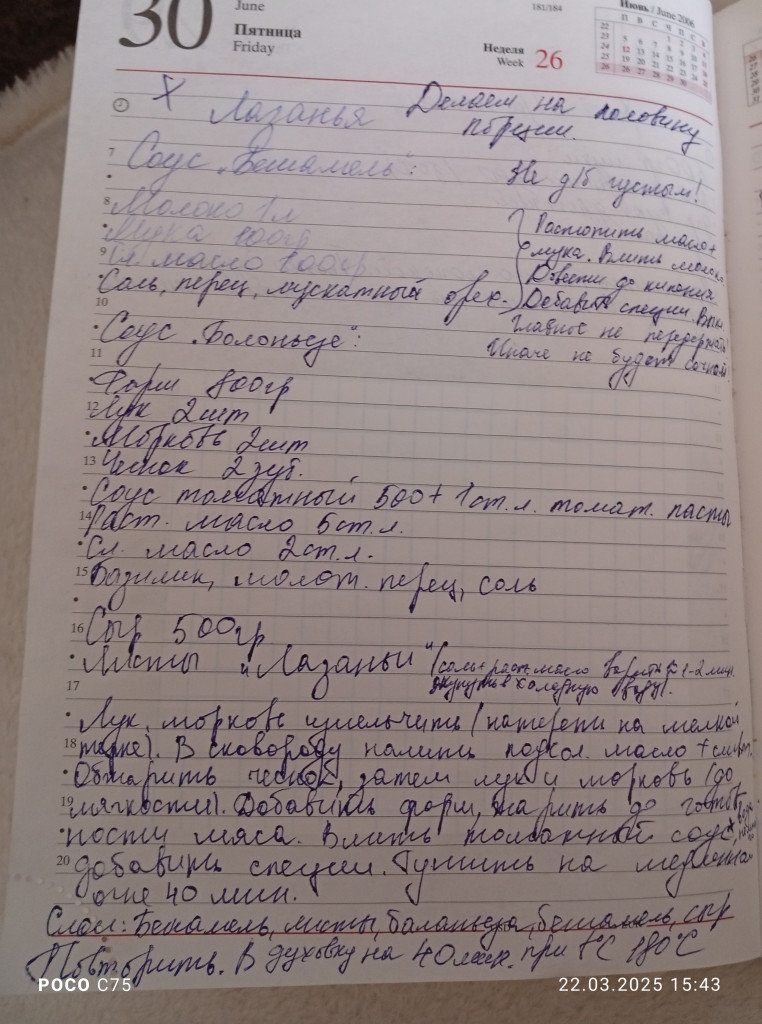 30
June
Пятница
Friday
181/184
Неделя
Week 26
Июнь / June 2006
П В С Ч П С В
X Лазанья Делаем на половину
порции.
7 Соус "Бешамель": Не д/б густым!
8 Молоко 1л
Мука 100гр
9 Сл масло 100гр
Соль, перец, мускатный орех.
Растопить масло +
мука. Влить молоко
Довести до кипения
Добавить специи.
Главное не передержать
Иначе не будет сочной
10
Соус "Болоньезе":
11
Фарш 800гр
12 Лук 2шт
Морковь 2шт
13 Чеснок 2 зуб.
Соус томатный 500 + 1 ст.л. томат. пасты
14 Раст. масло 5 ст.л.
Сл. масло 2 ст.л.
15 Базилик, молот. перец, соль
16 Сыр 500гр
Листы "Лазаньи" (соль + раст. масло варить 1-2 мин.
окунуть в холодную воду).
17
Лук, морковь измельчить (натереть на мелкой
18 терке). В сковороду налить подсол. масло + слив.
Обжарить чеснок, затем лук и морковь (до
19 мягкости). Добавить фарш, жарить до готов-
ности мяса. Влить томатный соус +
20 добавить специи. Тушить на медленном
огне 40 мин.
Слои: Бешамель, листы, баланьеза, бешамель, сыр
Повторить. В духовку на 40 мин. при t°C 180°C
POCO C75
22.03.2025 15:43